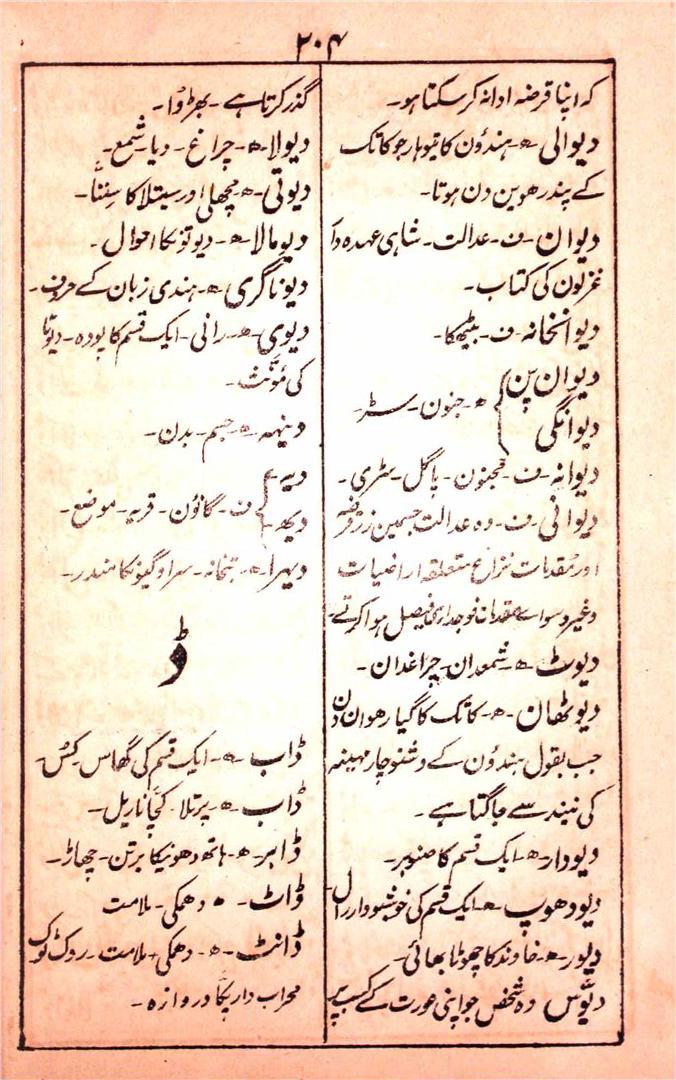 ۲۰۴
کہ اپنا قرضہ ادا نہ کر سکتا ہو۔
دیوالی ۔ ھ ۔ ہندؤن کا تیوہار جو کاتک
کے پندرھوین دن ہوتا۔
دیوان ۔ ف ۔ عدالت ۔ شاہی عہدہ دار
غزلون کی کتاب۔
دیوانخانہ ۔ ف ۔ بیٹھکا۔
دیوان پن
دیوانگی } ھ ۔ جنون ۔ سڑ۔
دیوانہ ۔ ف ۔ مجنون ۔ پاگل ۔ سڑی۔
دیوانی ۔ ف ۔ وہ عدالت جسمین زر قرضہ
اور مقدمات نزاع متعلقہ اراضیات
وغیرہ سواے مقدمات فوجداری فیصل ہوا کرتے۔
دیوٹ ۔ ھ ۔ شمعدان ۔ چراغدان۔
دیوٹھان ۔ ھ ۔ کاتک کا گیارھوان دن
جب بقول ہندؤن کے وشنو چار مہینہ
کی نیند سے جاگتا ہے۔
دیودار ۔ ھ ۔ ایک قسم کا صنوبر۔
دیودھوپ ۔ ھ ۔ ایک قسم کی خوشبودار رال۔
دیور ۔ ھ ۔ خاوند کا چھوٹا بھائی۔
دیوّس وہ شخص جو اپنی عورت کے کسب پر
گذر کرتا ہے ۔ بھڑوُا۔
دیولا ۔ ھ ۔ چراغ ۔ دیا ۔ شمع۔
دیوتی ۔ ھ ۔ مچھلی اور سیتلا کا
دیومالا ۔ ھ ۔ دیوتونکا احوال۔
دیوناگری ۔ ھ ۔ ہندی زبان کے حروف۔
دیوی ۔ ھ ۔ رانی ۔ ایک قسم کا پودہ ۔ دیوتا
کی مؤنّث۔
دینہہ ۔ ھ ۔ جسم ۔ بدن۔
دیہ
دیھ } ف ۔ گانؤن ۔ قریہ ۔ موضع۔
دیہرا ۔ ھ ۔ بتخانہ ۔ سراوگیونکا مندر۔
ڈ
ڈاب ۔ ھ ۔ ایک قسم کی گھاس کُس۔
ڈاب ۔ ھ ۔ پرتلا ۔ کچّا ناریل۔
ڈابر ۔ ھ ۔ ہاتھ دھونیکا برتن ۔ چھاڑ۔
ڈاٹ ۔ ھ ۔ دھمکی ۔ ملامت
ڈانٹ ۔ ھ ۔ دھمکی ۔ ملامت ۔ روک ٹوک
محراب دار پکّا دروازہ۔